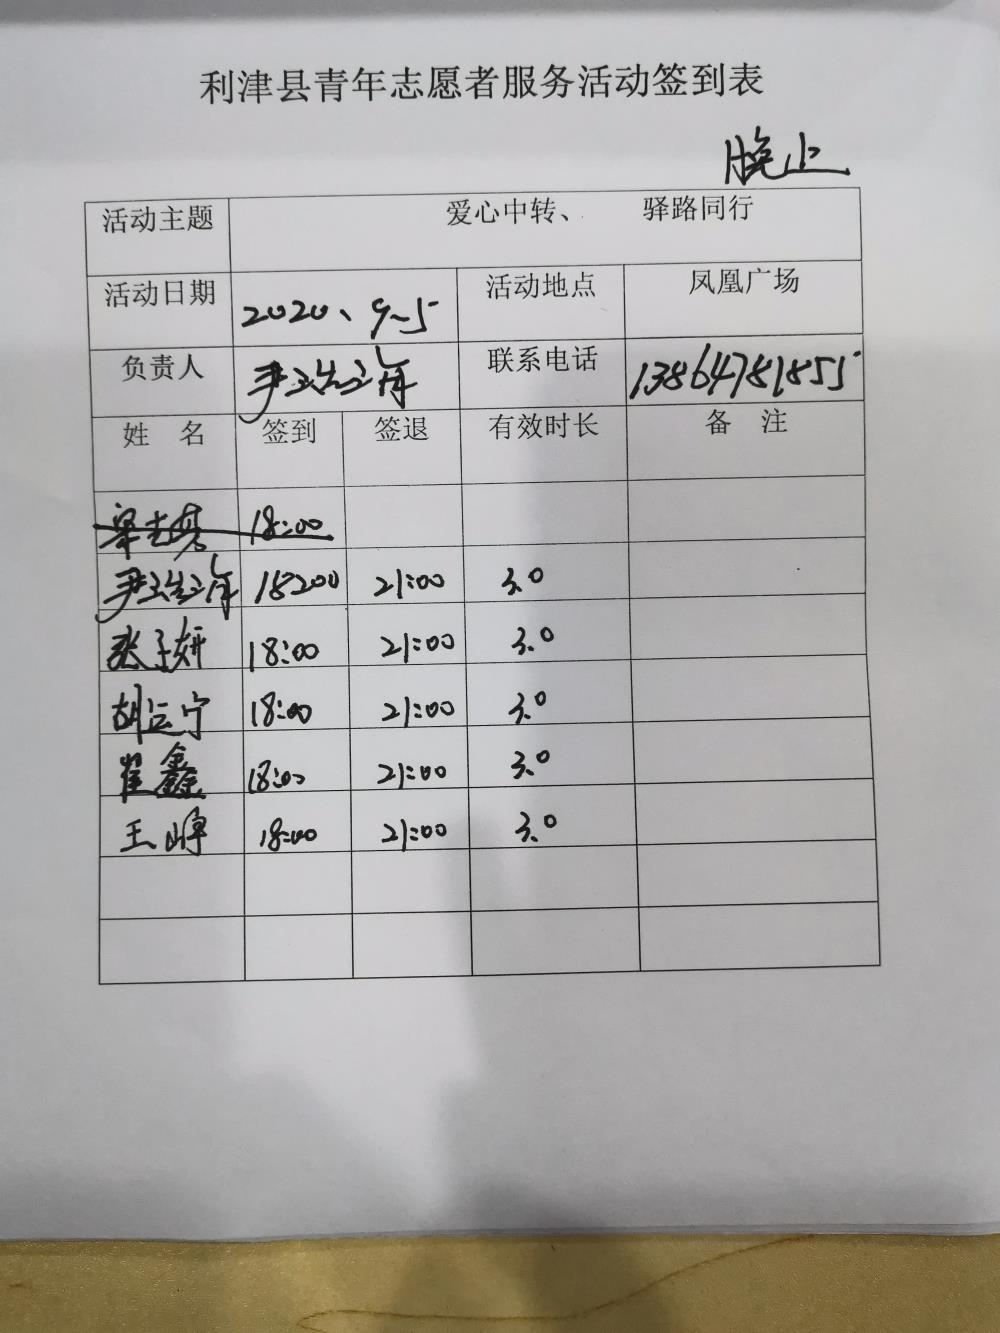 利津县青年志愿者服务活动签到表
晚上
活动主题 爱心中转、 驿路同行
活动日期 2020、9-5 活动地点 凤凰广场
负责人 尹 联系电话 13864781855
姓 名 签到 签退 有效时长 备 注
18:00
尹 18:00 21:00 3.0
张子妍 18:00 21:00 3.0
胡运宁 18:00 21:00 3.0
崔鑫 18:00 21:00 3.0
王峥 18:00 21:00 3.0